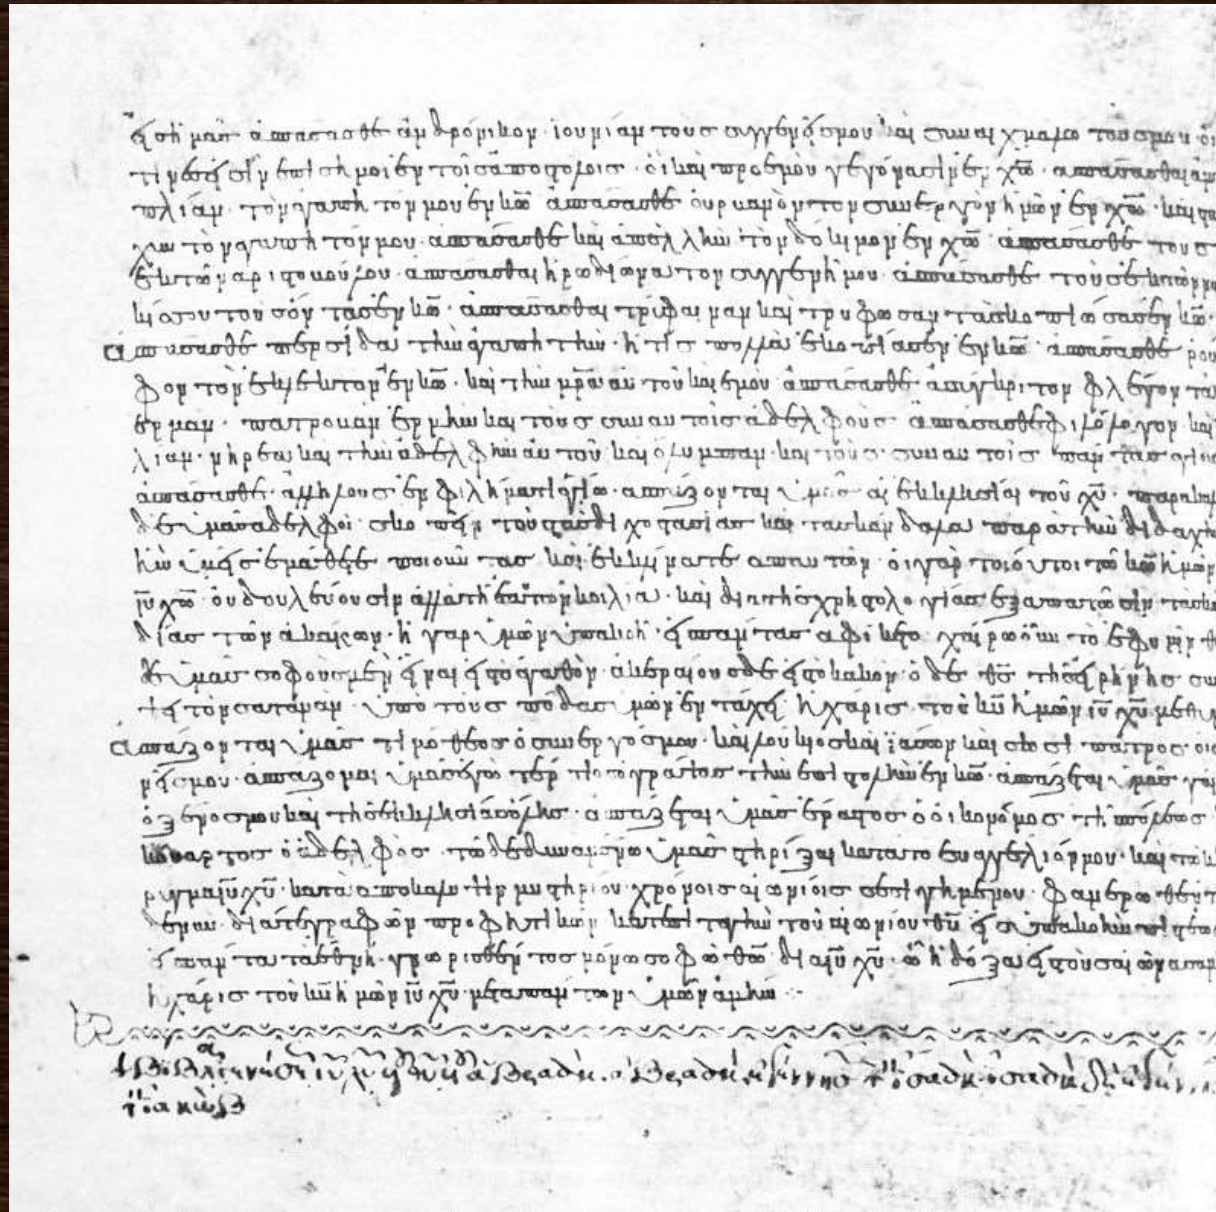 εἰς ἡμᾶς ἀσπάσασθε ἀνδρόνικον ἰουνίαν τοὺς συγγενεῖς μου καὶ συναιχμαλώτους μου οἵ
τινές εἰσιν ἐπίσημοι ἐν τοῖς ἀποστόλοις οἳ καὶ πρὸ ἐμοῦ γεγόνασιν ἐν χῶ ἀσπάσασθαι ἀμ
πλίαν τὸν ἀγαπητόν μου ἐν κῶ ἀσπάσασθε οὐρβανὸν τὸν συνεργὸν ἡμῶν ἐν χῶ καὶ στα
χυν τὸν ἀγαπητόν μου ἀσπάσασθε καὶ ἀπελλὴν τὸν δόκιμον ἐν χῶ ἀσπάσασθε τοὺς
ἐκ τῶν ἀριστοβούλου ἀσπάσασθαι ἡρωδίωνα τὸν συγγενῆ μου ἀσπάσασθε τοὺς ἐκ τῶν ναρ
κίσσου τοὺς ὄντας ἐν κῶ ἀσπάσασθαι τρύφαιναν καὶ τρυφῶσαν τὰς κοπιώσας ἐν κῶ
ἀσπάσασθε περσίδα τὴν ἀγαπητὴν ἥτις πολλὰ ἐκοπίασεν ἐν κῶ ἀσπάσασθε ῥοῦ
φον τὸν ἐκλεκτὸν ἐν κῶ καὶ τὴν μρα αὐτοῦ καὶ ἐμοῦ ἀσπάσασθε ἀσύγκριτον φλέγοντα
ἑρμᾶν πατρόβαν ἑρμὴν καὶ τοὺς σὺν αὐτοῖς ἀδελφούς ἀσπάσασθε φιλόλογον καὶ
λίαν νηρέα καὶ τὴν ἀδελφὴν αὐτοῦ καὶ ὀλυμπᾶν καὶ τοὺς σὺν αὐτοῖς πάντας ἁγίους
ἀσπάσασθε ἀλλήλους ἐν φιλήματι ἁγίω ἀσπάζονται ὑμᾶς αἱ ἐκκλησίαι τοῦ χῦ παρακαλ
δὲ ὑμᾶς ἀδελφοί σκοπεῖν τοὺς τὰς διχοστασίας καὶ τὰ σκάνδαλα παρὰ τὴν διδαχὴν
ἣν ὑμεῖς ἐμάθετε ποιοῦντας καὶ ἐκκλίνατε ἀπ αυτῶν οἱ γὰρ τοιοῦτοι τῶ κῶ ἡμῶν
ιῦ χῶ οὐ δουλεύουσιν ἀλλὰ τῆ ἑαυτῶν κοιλία καὶ διὰ τῆς χρηστολογίας ἐξαπατῶσιν τὰς κα
δίας τῶν ἀκάκων ἡ γὰρ ὑμῶν ὑπακοὴ εἰς πάντας ἀφίκετο χαίρω οὖν τὸ ἐφ ὑμῖν θ
δὲ ὑμᾶς σοφοὺς μὲν εἶναι εἰς τὸ ἀγαθὸν ἀκεραίους δὲ εἰς τὸ κακὸν ὁ δὲ θς τῆς εἰρήνης συ
τὸν σατανᾶν ὑπὸ τοὺς πόδας ὑμῶν ἐν τάχει ἡ χάρις τοῦ κῦ ἡμῶν ιῦ χῦ μεθ υ
ἀσπάζονται ὑμᾶς τιμόθεος ὁ συνεργός μου καὶ λούκιος καὶ ἰάσων καὶ σωσίπατρος οἱ σ
νεῖς μου ἀσπάζομαι ὑμᾶς ἐγὼ τέρτιος ὁ γράψας τὴν ἐπιστολὴν ἐν κῶ ἀσπάζεται ὑμᾶς γάι
ὁ ξένος μου καὶ τῆς ἐκκλησίας ὅλης ἀσπάζεται ὑμᾶς ἔραστος ὁ οἰκονόμος τῆς πόλεως
κούαρτος ὁ ἀδελφός τῶ δὲ δυναμένω ὑμᾶς στηρίξαι κατὰ τὸ εὐαγγέλιόν μου καὶ τὸ κ
ρυγμα ιῦ χῦ κατὰ ἀποκάλυψιν μυστηρίου χρόνοις αἰωνίοις σεσιγημένου φανερωθέντ
δὲ νῦν διά τε γραφῶν προφητικῶν κατ ἐπιταγὴν τοῦ αἰωνίου θῦ εἰς ὑπακοὴν πίστεως
εἰς πάντα τὰ ἔθνη γνωρισθέντος μόνω σοφῶ θῶ διὰ ιῦ χῦ ὧ ἡ δόξα εἰς τοὺς αἰῶνας αμ
ἡ χάρις τοῦ κῦ ἡμῶν ιῦ χῦ μετὰ πάντων ὑμῶν ἀμήν